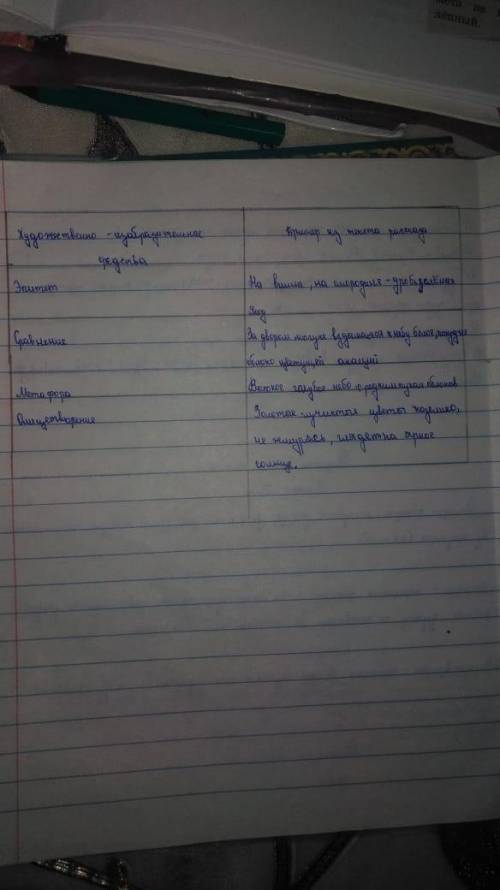 мета не
лённый.
Художественно - изобразительные
средства
Пример из текста рассказа
Эпитет
На вишне, на смородине -
зод
Сравнение
За двором вздымался к небу белое,
облако цветущей акации
Метафора
Важное голубое небо с редкими облаков
Олицетворение
Золотые лучистые цветы
не жмурясь, глядят на яркое
солнце.